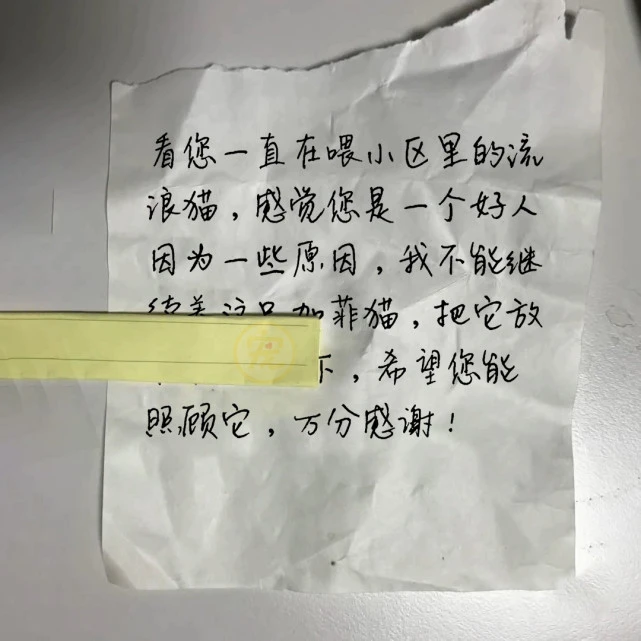 看您一直在喂小区里的流
浪猫，感觉您是一个好人
因为一些原因，我不能继
菲猫，把它放
下，希望您能
照顾它，万分感谢！